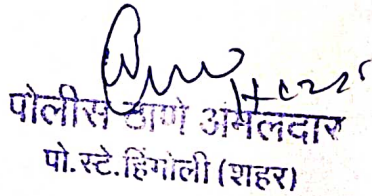 पोलीस ठाणे अंमलदार
पो.स्टे.हिंगोली (शहर)